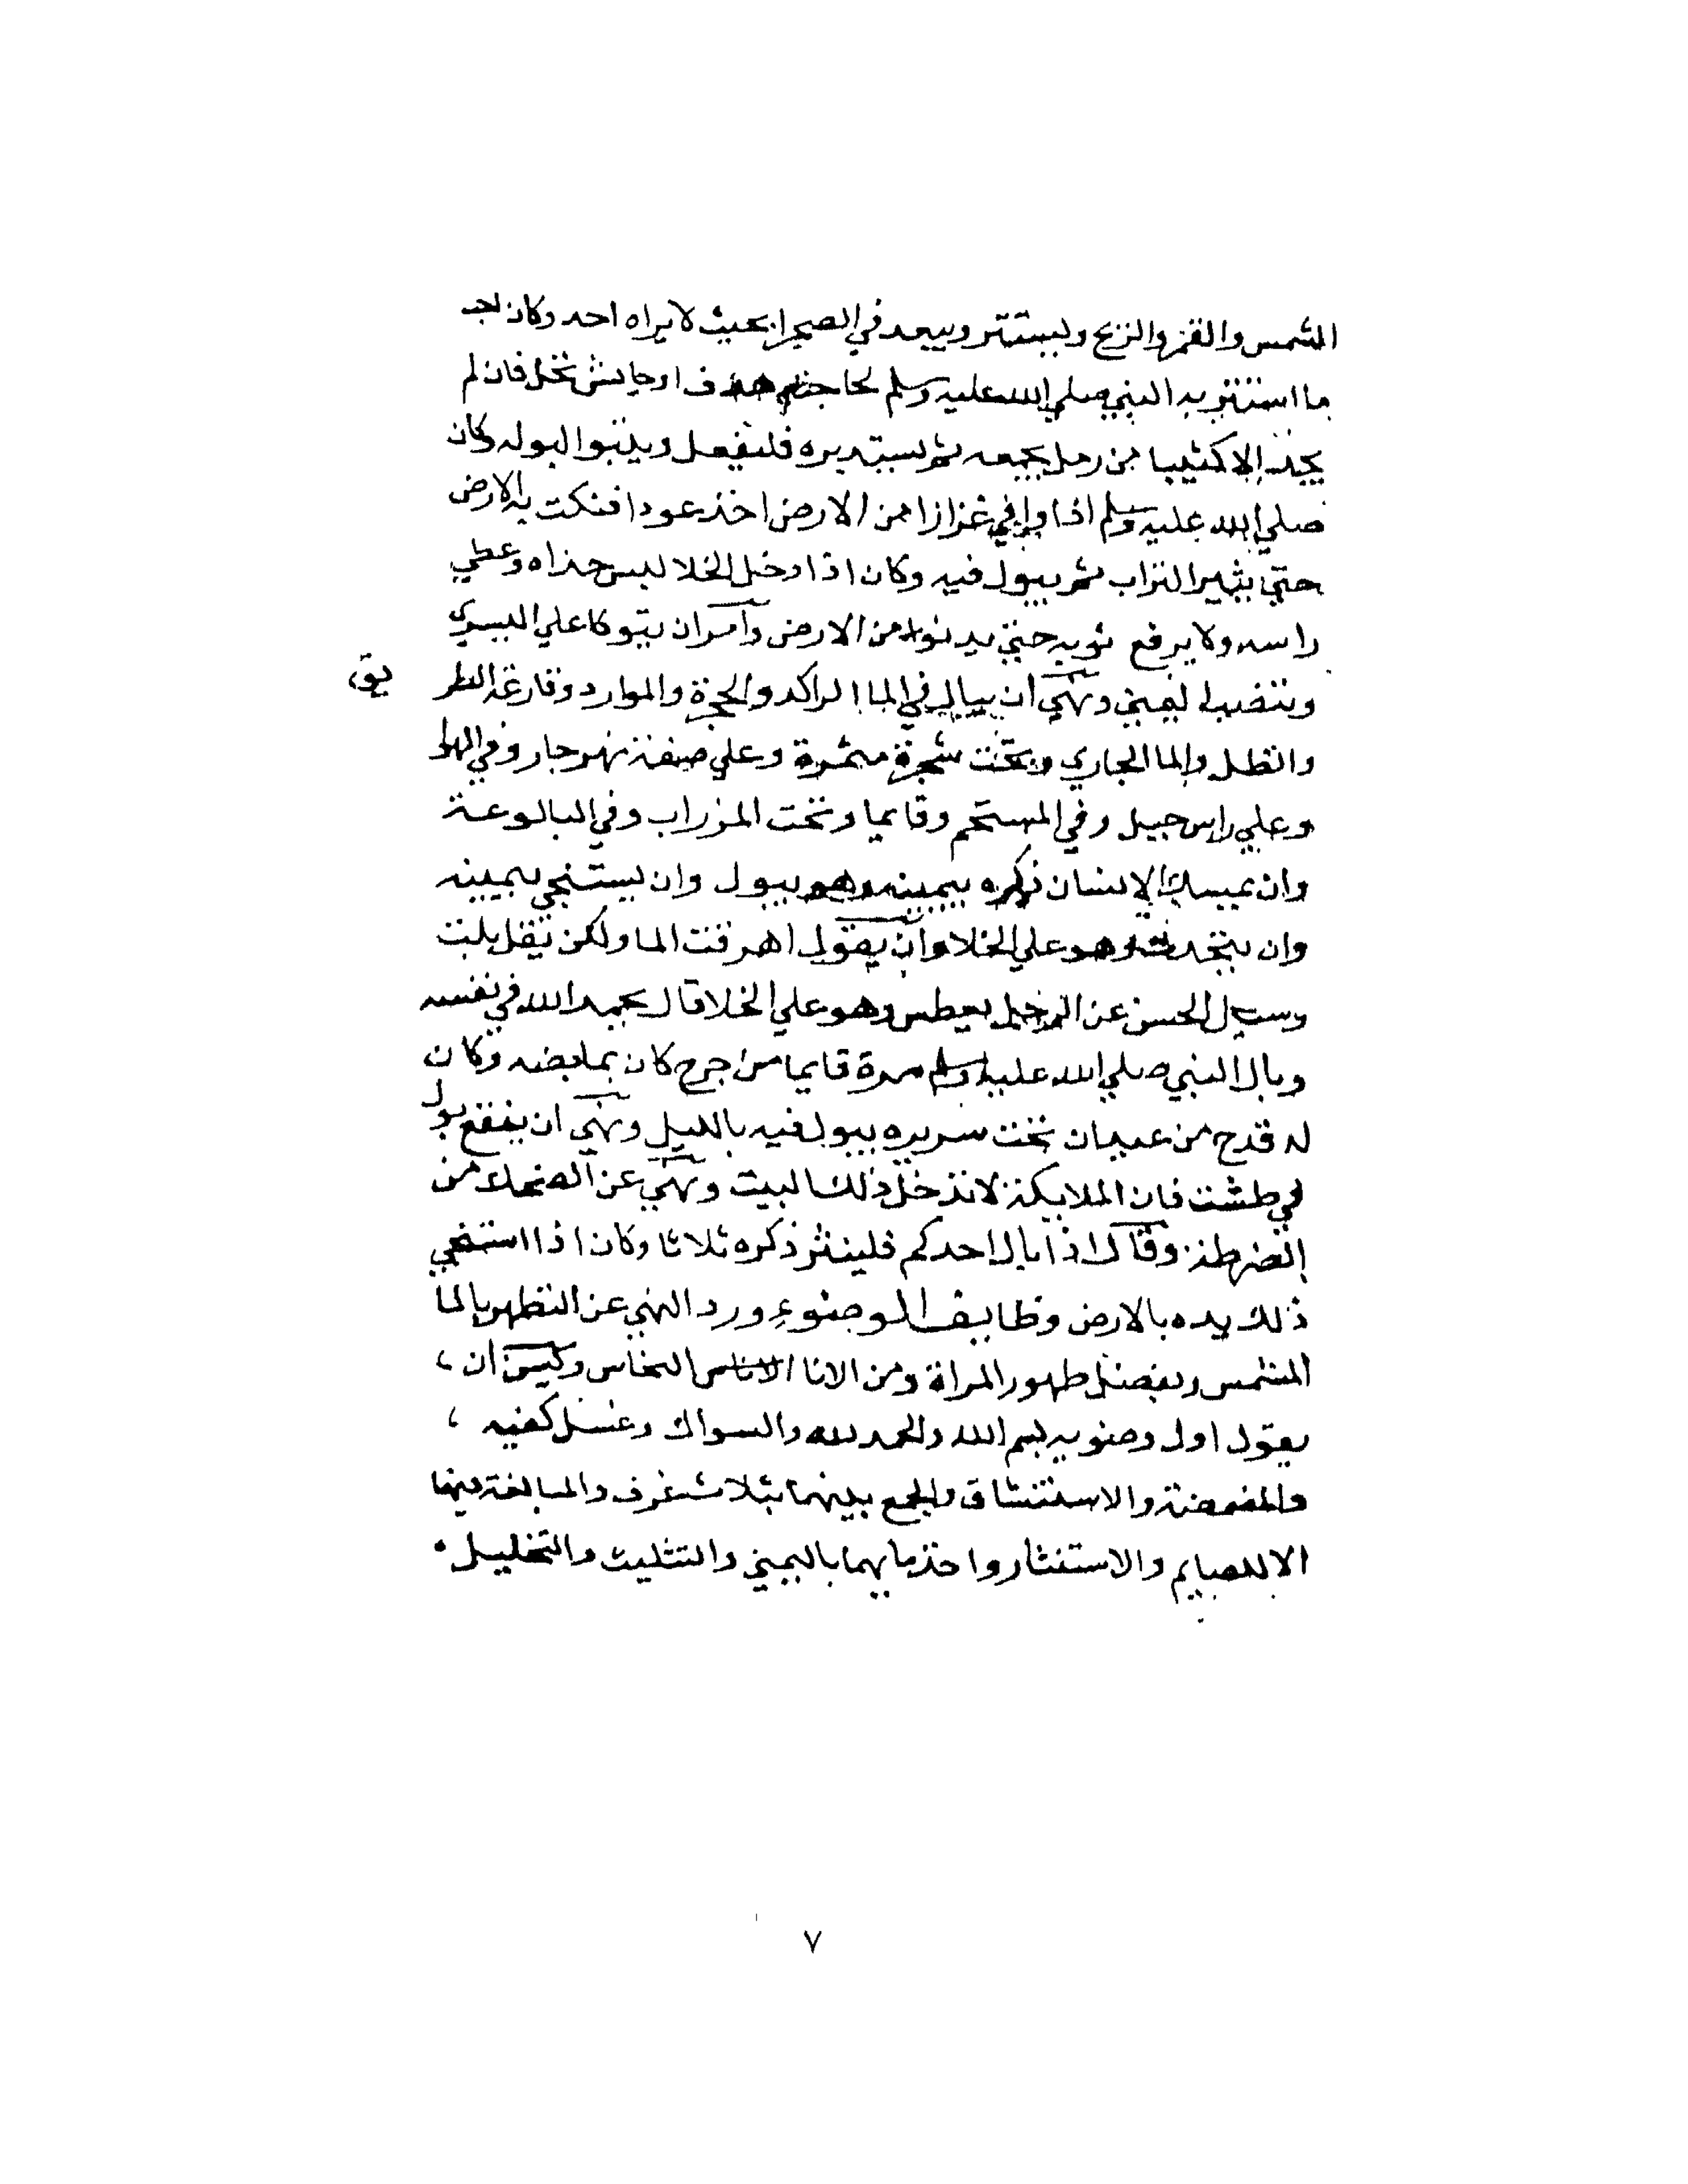 الشمس والقمر والريح وليستتر ويبعد في الصحرا بحيث لا يراه احد وكان احب
ما استتر به النبي صلي الله عليه وسلم لحاجته هدف او حايش نخل فان لم
يجد الا كثيبا من رمل يجمعه ثم يستدبره فليفعل ويتبوا لبوله وكان
صلي الله عليه وسلم اذا وافي عزازا من الارض اخذ عودا فنكت به الارض
حتي يثير التراب ثم يبول فيه وكان اذا دخل الخلا لبس حذاه وغطي
راسه ولا يرفع ثوبه حتي يدنوا من الارض وامر ان يتوكا علي اليسري
وينصب اليمني ونهي ان يبال في الما الراكد والجحرة والموارد وقارعة الطر
يق
والظل والما الجاري وتحت شجرة مثمرة وعلي ضفة نهر جار وفي الهوا
وعلي راس جبل وفي المستحم وقايما وتحت المزراب وفي البالوعة
وان يمسك الانسان ذكره بيمينه وهو يبول وان يستنجي بيمينه
وان يتحدث وهو علي الخلا وان يقول اهرقت الما ولكن يقل بلت
وسيل الحسن عن الرجل يعطس وهو علي الخلا قال يحمد الله في نفسه
وبال النبي صلي الله عليه وسلم مرة قايما من جرح كان بمابضه وكان
له قدح من عيدان تحت سريره يبول فيه بالليل ونهي ان ينقع بول
في طشت فان الملايكة لا تدخل ذلك البيت ونهي عن الضحك من
الضرطة وقال اذا بال احدكم فلينثر ذكره ثلاثا وكان اذا استنجي
ذلك يده بالارض وظايف الوضوء ورد النهي عن التطهر بالما
المشمس وبفضل طهور المراة ومن الانا النحاس وليس ان
يقول اول وضويه بسم الله والحمد لله والسواك وغسل كفيه
والمضمضة والاستنشاق والجمع بينهما بثلاث غرف والمبالغة فيهما
الا للصايم والاستنثار واخذ مايهما باليمني والتثليث والتخليل
٧